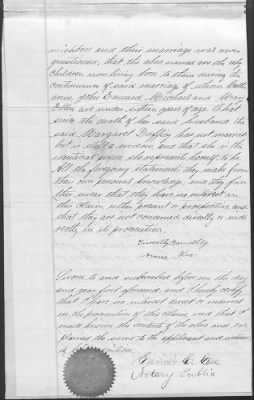 neighbors and their marriage was never
questioned, that the above names are the only
children now living born to them during the
continuance of said marriage of whom Cath
arine, John Edward, Michael and Mary
Ellen are under sixteen years of age. That
since the death of her said husband the
said Margaret Duffey has not married
but is still a widow and that she is the
identical person she represents herself to be
All the foregoing statements they make from
their own personal knowledge, and they fur
ther swear that they have no interest in
this claim either present or prospective, and
that they are not concerned, directly or indi
rectly in its prosecution.
Timothy
Sworn to and subscribed before me the day
and year first aforesaid, and I hereby certify
that I have no interest direct or indirect
in the prosecution of this claim, and that I
made known the contents of the above and ex
plained the same to the applicant and witness
Notary Public